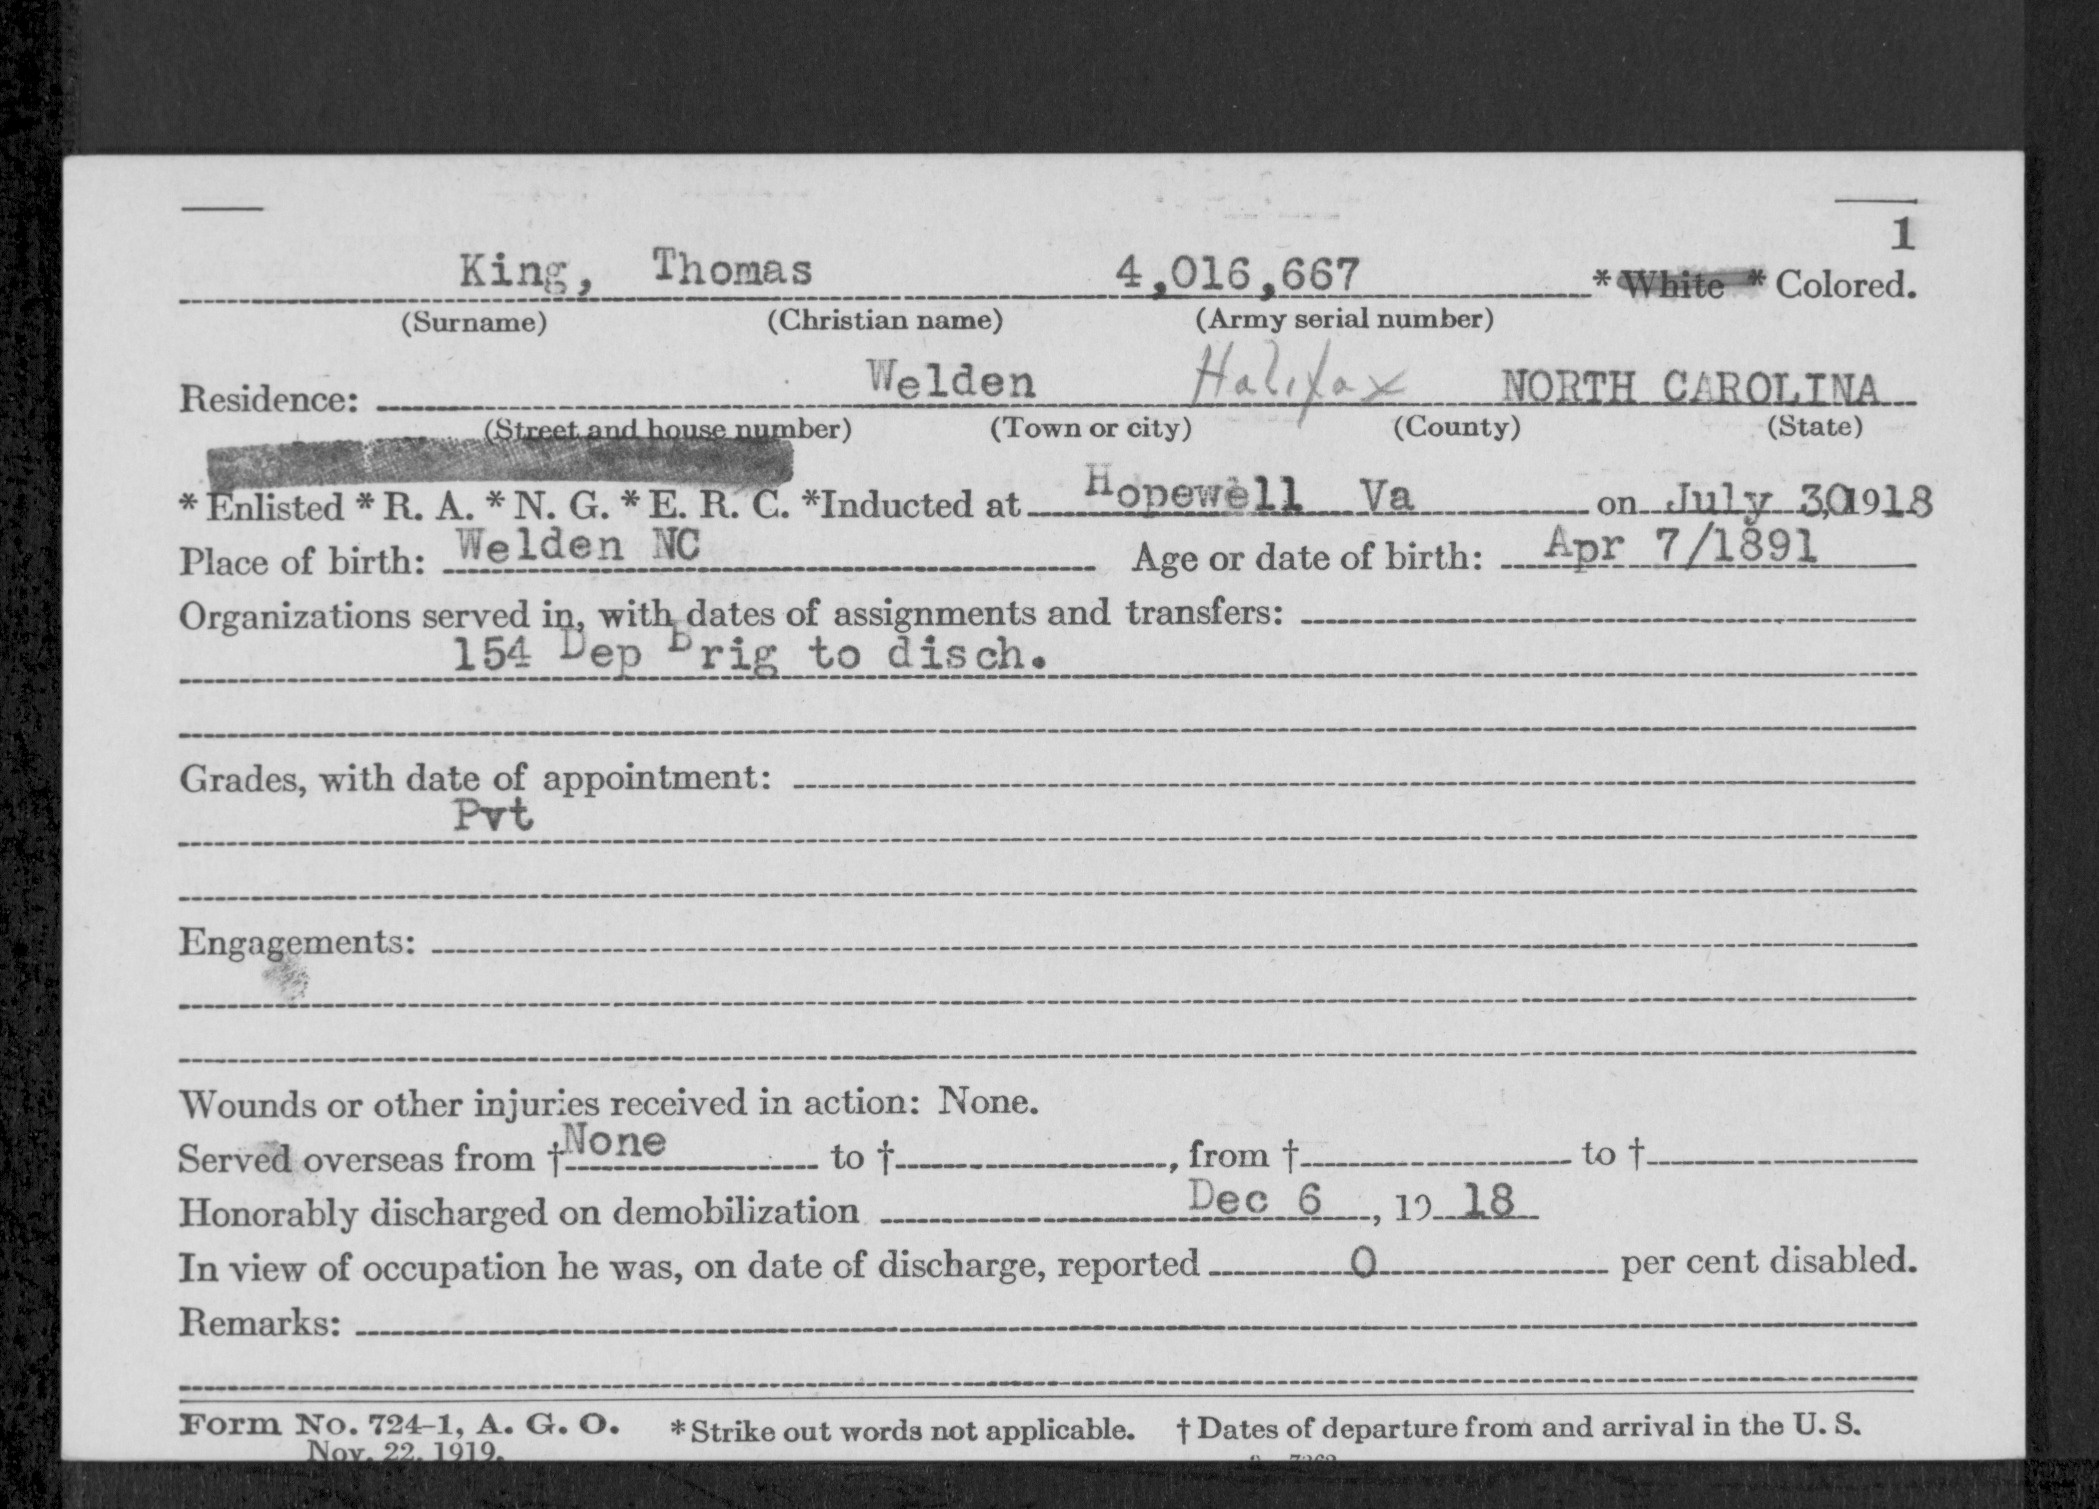 1
King, Thomas 4,016,667 * White * Colored.
(Surname) (Christian name) (Army serial number)
Residence: Welden Halifax NORTH CAROLINA
(Street and house number) (Town or city) (County) (State)
* Enlisted * R. A. * N. G. * E. R. C. *Inducted at Hopewell Va on July 30, 1918
Place of birth: Welden NC Age or date of birth: Apr 7/1891
Organizations served in, with dates of assignments and transfers:
154 Dep Brig to disch.
Grades, with date of appointment:
Pvt
Engagements:
Wounds or other injuries received in action: None.
Served overseas from † None to † , from † to †
Honorably discharged on demobilization Dec 6 , 19 18
In view of occupation he was, on date of discharge, reported 0 per cent disabled.
Remarks:
Form No. 724-1, A. G. O. * Strike out words not applicable. † Dates of departure from and arrival in the U. S.
Nov. 22, 1919.